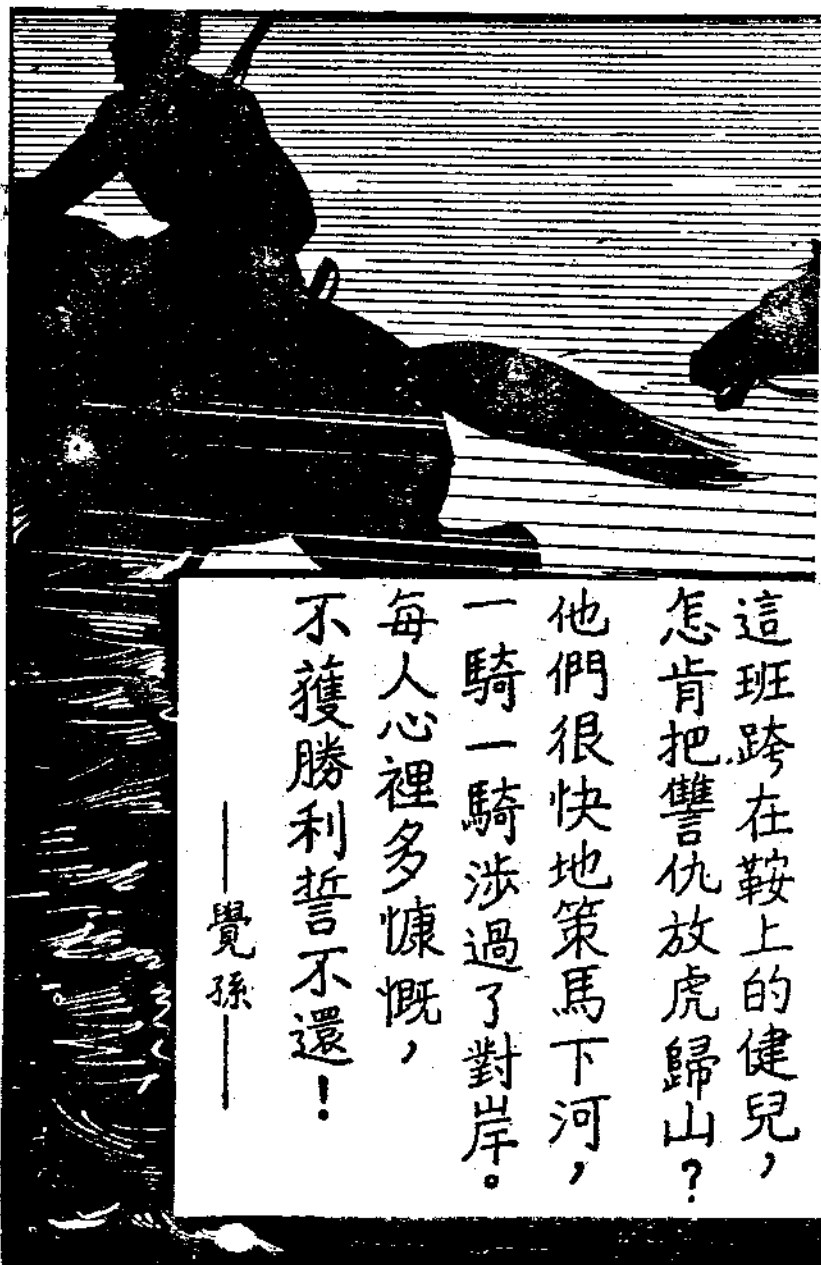 這班跨在鞍上的健兒，
怎肯把讐仇放虎歸山？
他們很快地策馬下河，
一騎一騎涉過了對岸。
每人心裡多慷慨，
不獲勝利誓不還！
——覺孫——